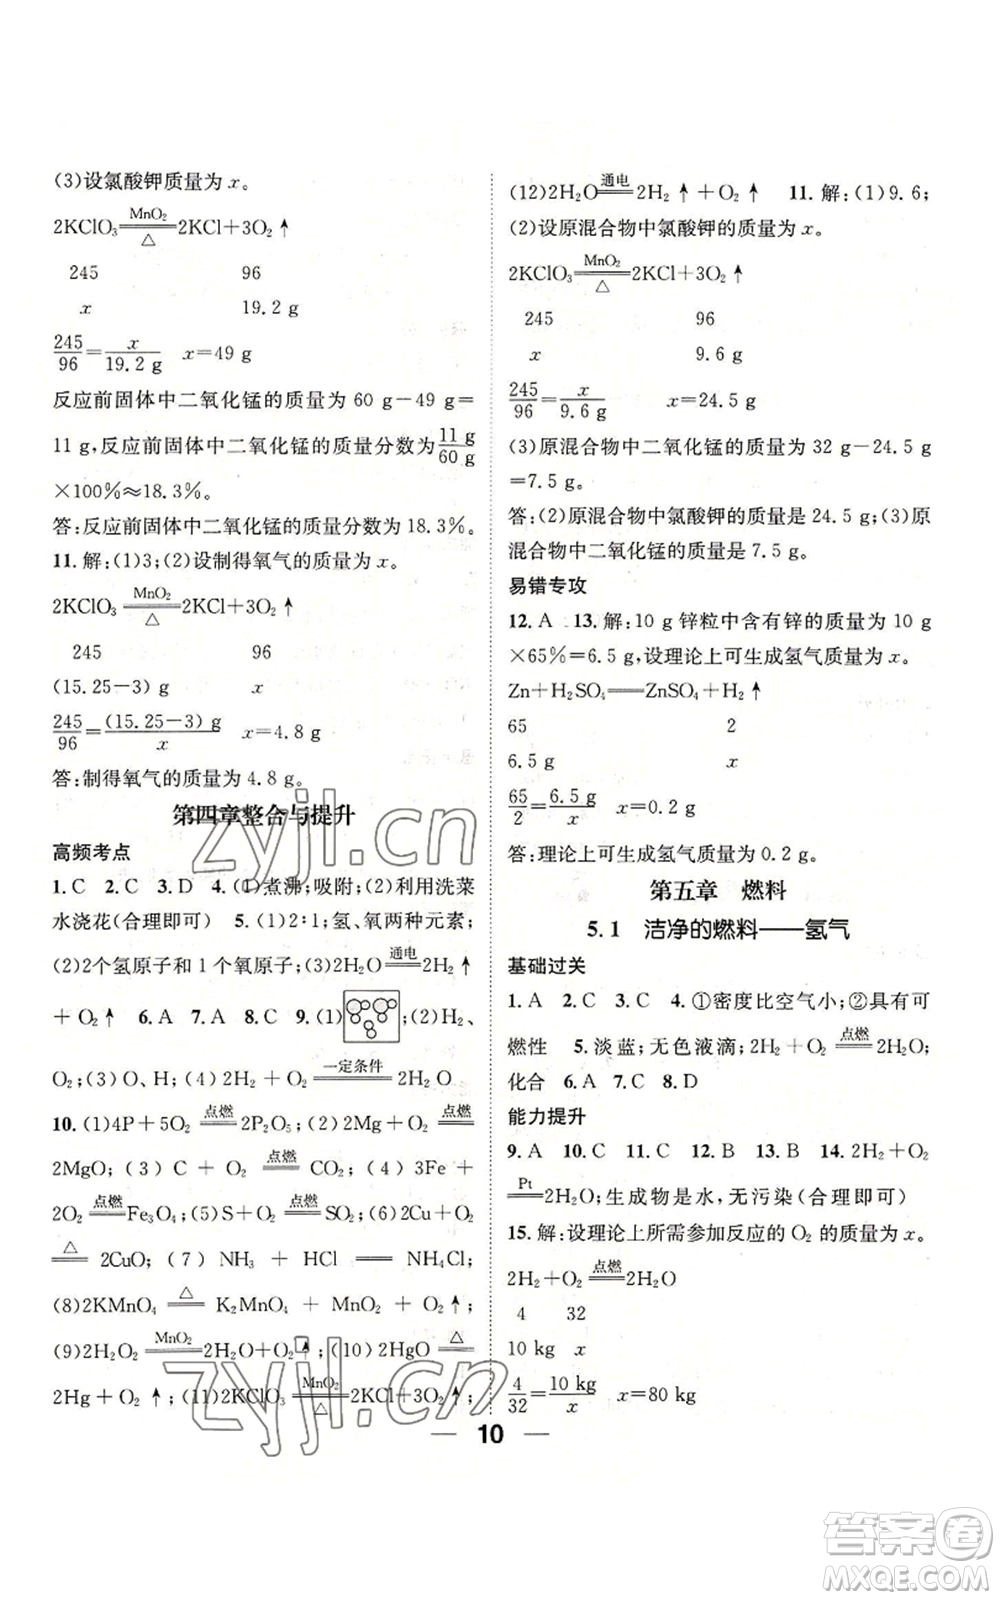 (3)设氯酸钾质量为 x。
2KClO₃ =MnO₂/△= 2KCl+3O₂↑
245 96
x 19.2 g
245/96 = x/19.2 g x=49 g
反应前固体中二氧化锰的质量为 60 g－49 g＝
11 g，反应前固体中二氧化锰的质量分数为 11 g/60 g
×100%≈18.3%。
答:反应前固体中二氧化锰的质量分数为 18.3%。
11. 解:(1)3;(2)设制得氧气的质量为 x。
2KClO₃ =MnO₂/△= 2KCl+3O₂↑
245 96
(15.25－3)g x
245/96 = (15.25－3) g/x x=4.8 g
答:制得氧气的质量为 4.8 g。
第四章整合与提升
高频考点
1. C 2. C 3. D 4. (1)煮沸;吸附;(2)利用洗菜
水浇花(合理即可) 5. (1)2∶1;氢、氧两种元素;
(2)2个氢原子和 1 个氧原子;(3)2H₂O =通电= 2H₂↑
+O₂↑ 6. A 7. A 8. C 9. (1) ;(2)H₂、
O₂;(3)O、H;(4)2H₂+O₂ =一定条件= 2H₂O
10. (1)4P+5O₂ =点燃= 2P₂O₅;(2)2Mg+O₂ =点燃=
2MgO;(3)C+O₂ =点燃= CO₂;(4)3Fe+
2O₂ =点燃= Fe₃O₄;(5)S+O₂ =点燃= SO₂;(6)2Cu+O₂
=△= 2CuO;(7)NH₃+HCl == NH₄Cl;
(8)2KMnO₄ =△= K₂MnO₄+MnO₂+O₂↑;
(9)2H₂O₂ =MnO₂= 2H₂O+O₂↑;(10)2HgO =△=
2Hg+O₂↑;(11)2KClO₃ =MnO₂/△= 2KCl+3O₂↑;
(12)2H₂O =通电= 2H₂↑+O₂↑ 11. 解:(1)9.6;
(2)设原混合物中氯酸钾的质量为 x。
2KClO₃ =MnO₂/△= 2KCl+3O₂↑
245 96
x 9.6 g
245/96 = x/9.6 g x=24.5 g
(3)原混合物中二氧化锰的质量为 32 g－24.5 g
=7.5 g。
答:(2)原混合物中氯酸钾的质量是 24.5 g;(3)原
混合物中二氧化锰的质量是 7.5 g。
易错专攻
12. A 13. 解:10 g 锌粒中含有锌的质量为 10 g
×65%=6.5 g,设理论上可生成氢气质量为 x。
Zn+H₂SO₄ == ZnSO₄+H₂↑
65 2
6.5 g x
65/2 = 6.5 g/x x=0.2 g
答:理论上可生成氢气质量为 0.2 g。
第五章 燃料
5.1 洁净的燃料——氢气
基础过关
1. A 2. C 3. C 4. ①密度比空气小;②具有可
燃性 5. 淡蓝;无色液滴;2H₂+O₂ =点燃= 2H₂O;
化合 6. A 7. C 8. D
能力提升
9. A 10. C 11. C 12. B 13. B 14. 2H₂+O₂
=Pt= 2H₂O;生成物是水,无污染(合理即可)
15. 解:设理论上所需参加反应的 O₂ 的质量为 x。
2H₂+O₂ =点燃= 2H₂O
4 32
10 kg x
4/32 = 10 kg/x x=80 kg
10
zyjl.cn
zyjl.cn
答案卷
MXQE.COM